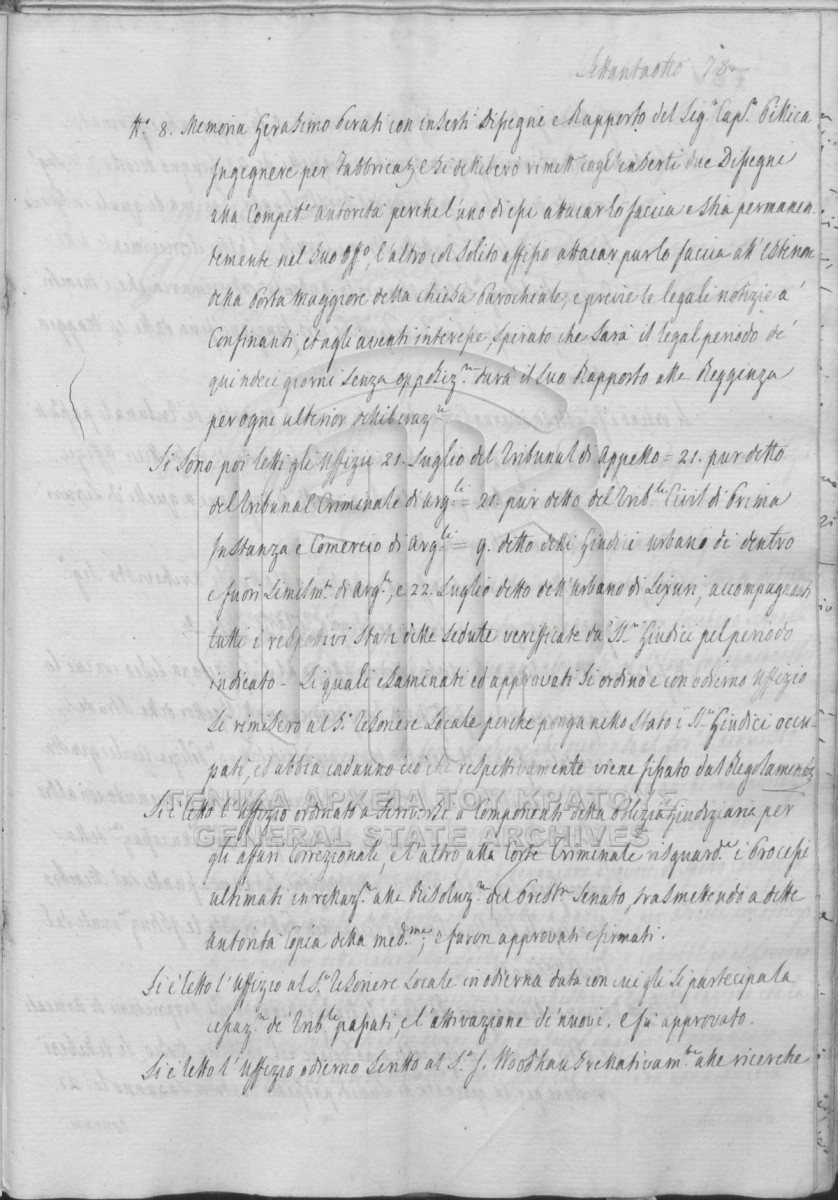 Settantaotto 78
N.º 8. Memoria Gerasimo Perati con inserti Dissegni e Rapporto del Sig.r Cap.n Pittica
Ingegnere per Fabbricaz.e Si deliberò rimett. ingl'inserti due Dissegni
alla Compet.e autorità perchè l'uno di essi attacar lo faccia e stia permanen-
temente nel Suo Off.o, l'altro col Solito affisso attacar pur lo faccia all'Esterno
della Porta Maggiore della Chiesa Parochiale, e previe le legali notizie a'
Confinanti, et agli aventi interesse, Spirato che Sarà il legal periodo de'
quindeci giorni Senza opposiz.ne darà il Suo Rapporto alla Reggenza
per ogni ulterior deliberaz.ne
Si Sono poi letti gli Uffizii 21. Luglio del Tribunal di Appello = 21. pur detto
del Tribunal Criminale di Arg.li = 21. pur detto del Trib.le Civil di Prima
Instanza e Comercio di Arg.li = 9. detto delli Giudici urbano di dentro
e fuori Similm.te di Arg.li, e 22. Luglio detto dell'Urbano di Lixuri, accompagnanti
tutti i respettivi Stati delle Sedute verifficate da S.ri Giudici pel periodo
indicato - Li quali esaminati ed approvati Si ordinò e con odierno Uffizio
Si rimisero al S.r Tesoriere Locale perchè ponga nello Stato i S.ri Giudici occu-
pati, ed abbia cadauno ciò che respettivamente viene fissato dal Regolamento
ΓΕΝΙΚΑ ΑΡΧΕΙΑ ΤΟΥ ΚΡΑΤΟΥΣ
GENERAL STATE ARCHIVES
Si è letto l'Uffizio ordinato a Scriversi a Componenti della Polizia Giudiziaria per
gli affari Correzionale, e l'altro alla Corte Criminale risguard.e i Processi
ultimati in relaz.ne alla Risoluz.ne del Prest.mo Senato, trasmettendo a dette
Autorità Copia della med.ma, e furon approvati e firmati.
Si è letto l'Uffizio al S.r Tesoriere Locale in odierna data con cui gli Si partecipa la
cessaz.ne de' Trib.li passati, e l'attivazione de' nuovi. e fù approvato.
Si è letto l'Uffizio odierno Scritto al S.r J. Woodhau Srellativam.te alle ricerche